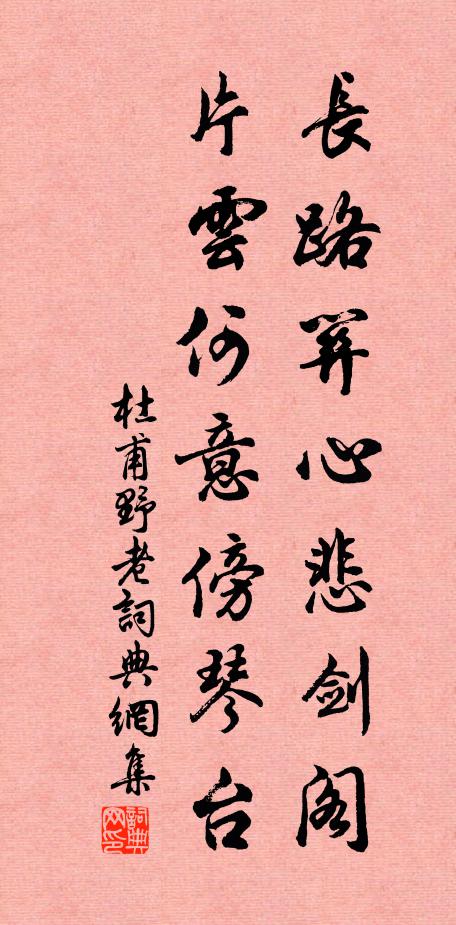 長路關心悲剑阁
片雲何意傍琴台
杜甫野老詞典網集
詞典网印